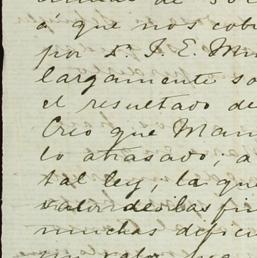 á que nos cob
por Dn J. E. Mu
largamente so
el resultado de
Creo que Man
lo atrasado, a
tal ley, la que
valor de las fin
muchas defici